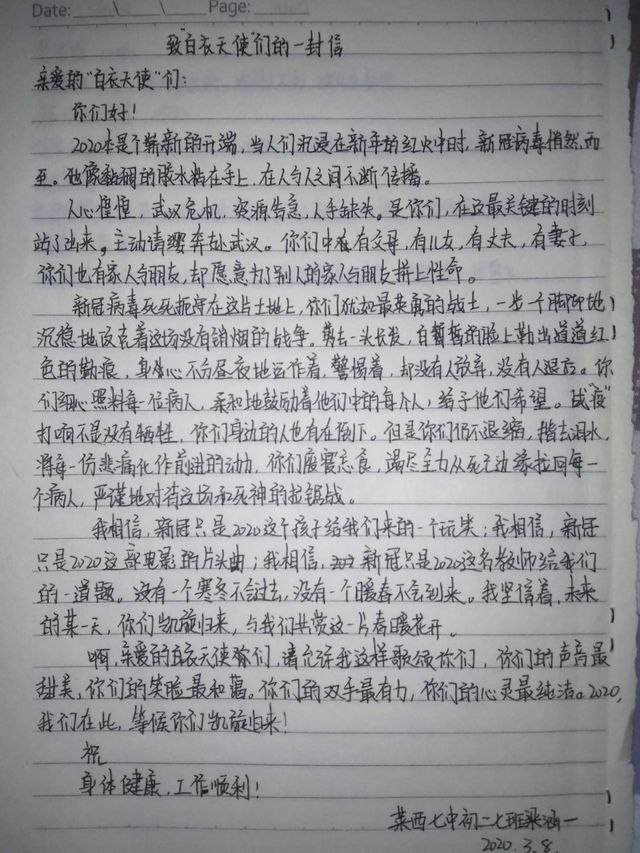 Date: Page:
致"白衣天使"们的一封信
亲爱的"白衣天使"们:
你们好!
2020本是个崭新的开端,当人们沉浸在新年的红火中时,新冠病毒悄然而
至。他像黏稠的胶水粘在手上,在人与人之间不断传播。
人心惶惶,武汉危机,资源告急,人手缺失。是你们,在这最关键的时刻
站了出来。主动请缨奔赴武汉。你们中有父母,有儿女,有丈夫,有妻子,
你们也有家人与朋友,却愿意为了别人的家人与朋友拼上性命。
新冠病毒死死扼守在这片土地上,你们犹如最英勇的战士,一步一个脚印地
沉稳地攻克着这场没有销烟的战争。剪去一头长发,白皙的脸上勒出道道红
色的勒痕,身心不分昼夜地运作着,警惕着,却没有人放弃,没有人退后。你
们细心照料每一位病人,柔和地鼓励着他们中的每个人,给予他们希望。战"疫"
打响不是没有牺牲,你们身边的人也有在倒下。但是你们仍不退缩,揩去泪水,
将每一份悲痛化作前进的动力,你们废寝忘食,竭尽全力从死亡边缘拉回每一
个病人,严谨地对待这场和死神的拉锯战。
我相信,新冠只是2020这个孩子给我们来的一个玩笑;我相信,新冠
只是2020这部电影的片头曲;我相信,新冠只是2020这名教师给我们
的一道题。没有一个寒冬不会过去,没有一个暖春不会到来。我坚信着,未来
的某一天,你们凯旋归来,与我们共赏这一片春暖花开。
啊,亲爱的白衣天使们,请允许我这样歌颂你们,你们的声音最
甜美,你们的笑脸最和蔼。你们的双手最有力,你们的心灵最纯洁。2020,
我们在此,等候你们凯旋归来!
祝
身体健康,工作顺利!
莱西七中初二七班梁涵一
2020.3.8.